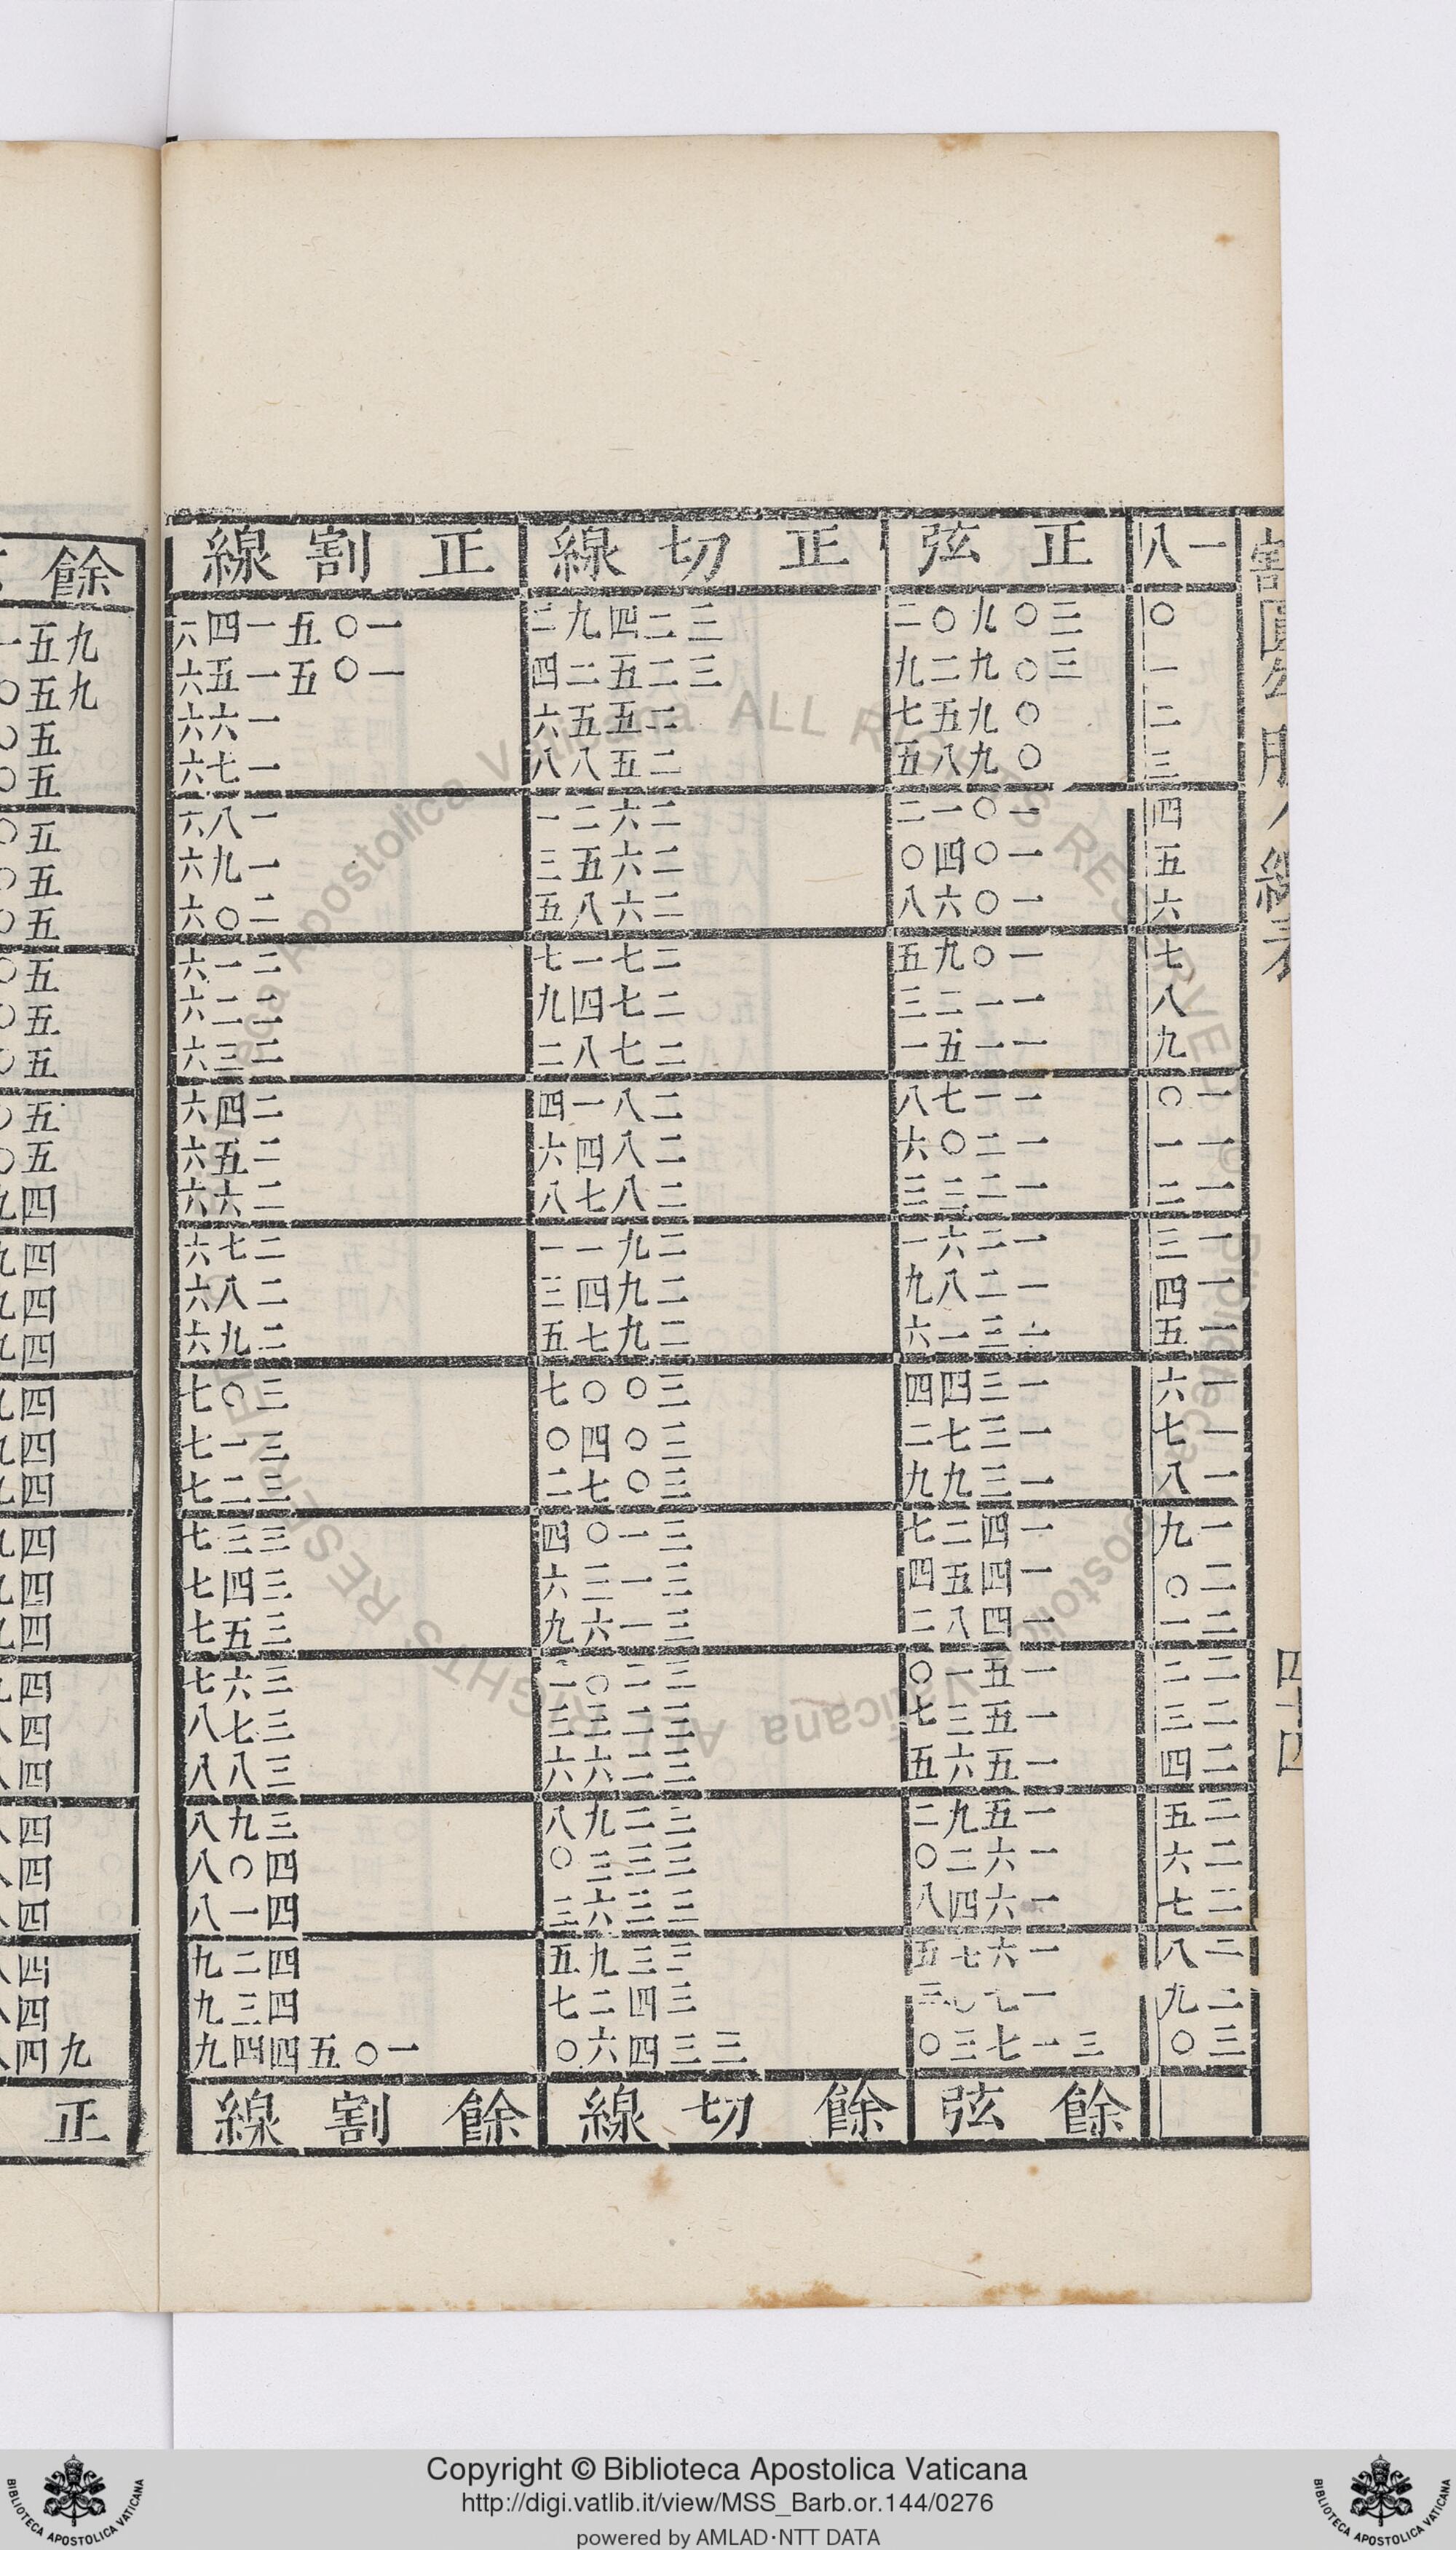 割圓勾股八線表
四十四
一八 正弦 正切線 正割線 餘
〇 三〇九〇二 三二四九二 一〇五一四六 九五一
一 三〇九二九 三二五二四 一〇五一五六 九五〇
二 〇九五七 二五五六 一六六 五〇
三 〇九八五 二五八八 一七六 五〇
四 一〇一二 二六二一 一八六 五〇
五 一〇四〇 二六五三 一九六 五〇
六 一〇六八 二六八五 二〇六 五〇
七 一〇九五 二七一七 二一六 五〇
八 一一二三 二七四九 二二六 五〇
九 一一五一 二七八二 二三六 五〇
一〇 一一七八 二八一四 二四六 五〇
一一 一二〇六 二八四六 二五六 五〇
一二 一二三三 二八七八 二六六 四九
一三 一二六一 二九一一 二七六 四九
一四 一二八九 二九四三 二八六 四九
一五 一三一六 二九七五 二九六 四九
一六 一三四四 三〇〇七 三〇七 四九
一七 一三七二 三〇四〇 三一七 四九
一八 一三九九 三〇七二 三二七 四九
一九 一四二七 三一〇四 三三七 四九
二〇 一四五四 三一三六 三四七 四九
二一 一四八二 三一六九 三五七 四九
二二 一五一〇 三二〇一 三六七 四九
二三 一五三七 三二三三 三七八 四八
二四 一五六五 三二六六 三八八 四八
二五 一五九二 三二九八 三九八 四八
二六 一六二〇 三三三〇 四〇八 四八
二七 一六四八 三三六三 四一八 四八
二八 一六七五 三三九五 四二九 四八
二九 一七〇三 三四二七 四三九 四八
三〇 三一七三〇 三三四六〇 一〇五四四九 九四八
餘弦 餘切線 餘割線 正
Copyright © Biblioteca Apostolica Vaticana
http://digi.vatlib.it/view/MSS_Barb.or.144/0276
powered by AMLAD·NTT DATA
BIBLIOTECA APOSTOLICA VATICANA
BIBLIOTECA APOSTOLICA VATICANA